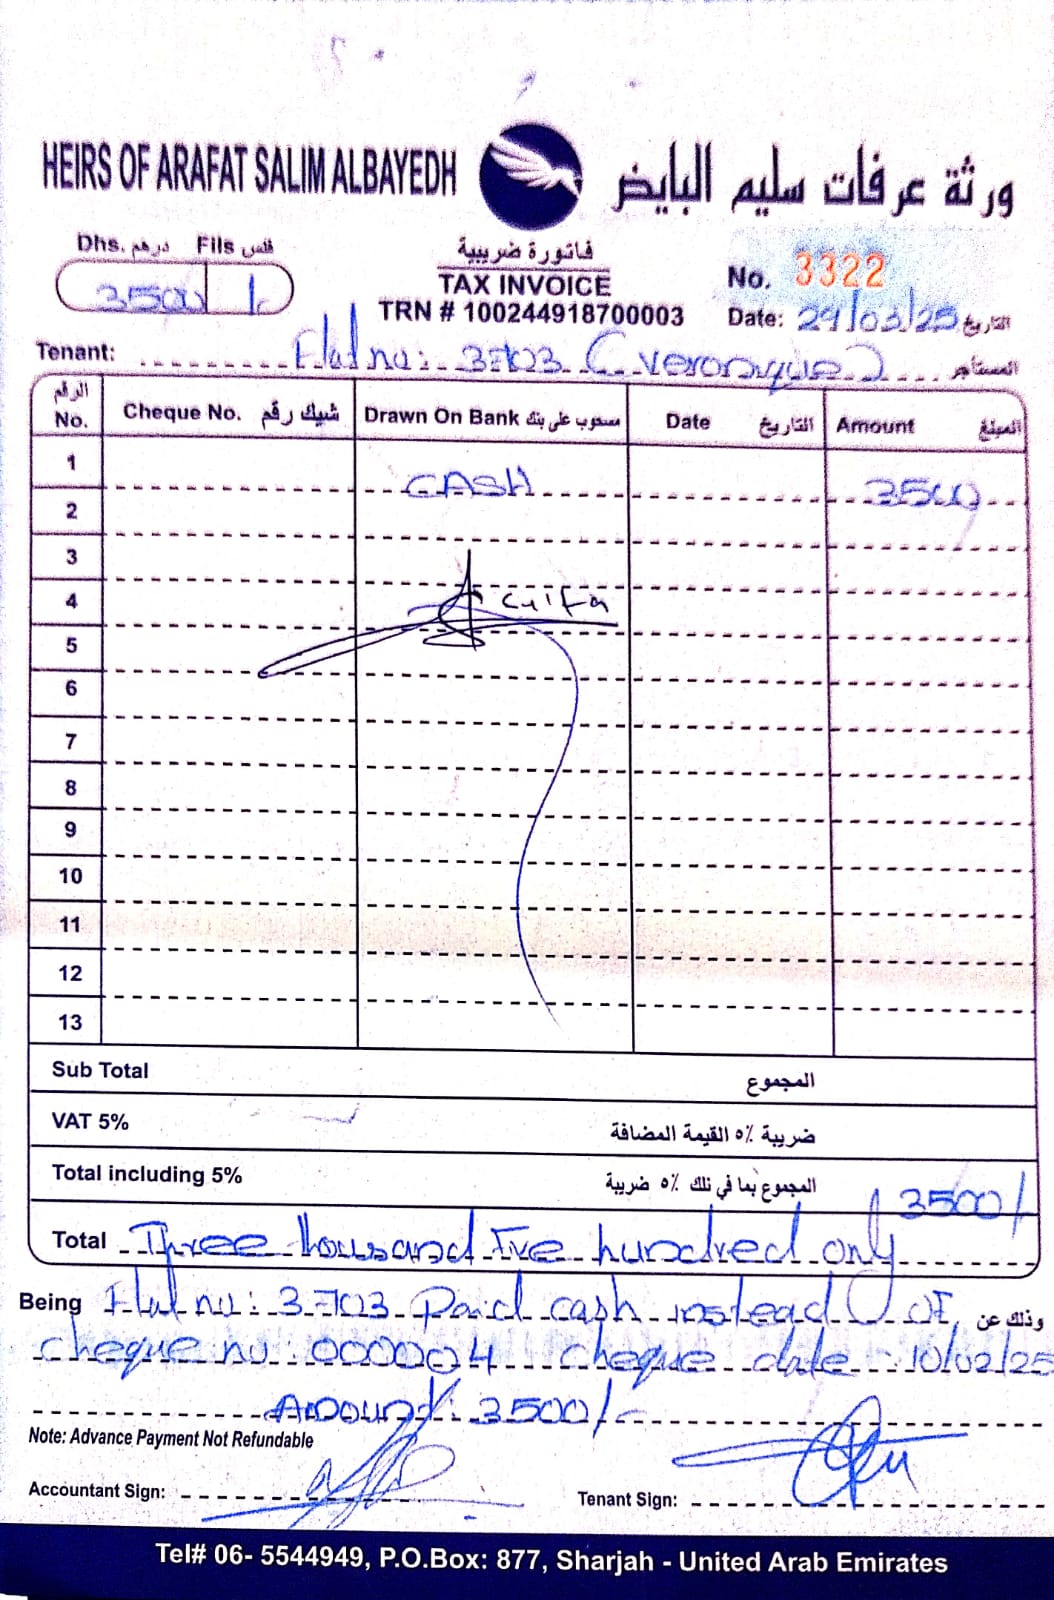 HEIRS OF ARAFAT SALIM ALBAYEDH ورثة عرفات سليم البايض
Dhs. درهم Fils فلس
3500 /-
فاتورة ضريبية
TAX INVOICE
TRN # 100244918700003
No. 3322
Date: 29/03/25 التاريخ
Tenant: Flat no: 3703 (veronique) المستأجر
الرقم No. Cheque No. شيك رقم Drawn On Bank مسحوب على بنك Date التاريخ Amount المبلغ
1 CASH 3500
2
3
4
5
6
7
8
9
10
11
12
13
Sub Total المجموع
VAT 5% ضريبة ٥٪ القيمة المضافة
Total including 5% المجموع بما في تلك ٥٪ ضريبة 3500/
Total Three thousand Five hundred only
Being Flat no: 3703 Paid cash instead of وذلك عن
cheque no 000004 cheque date - 10/02/25
Amount: 3500/-
Note: Advance Payment Not Refundable
Accountant Sign:
Tenant Sign:
Tel# 06- 5544949, P.O.Box: 877, Sharjah - United Arab Emirates